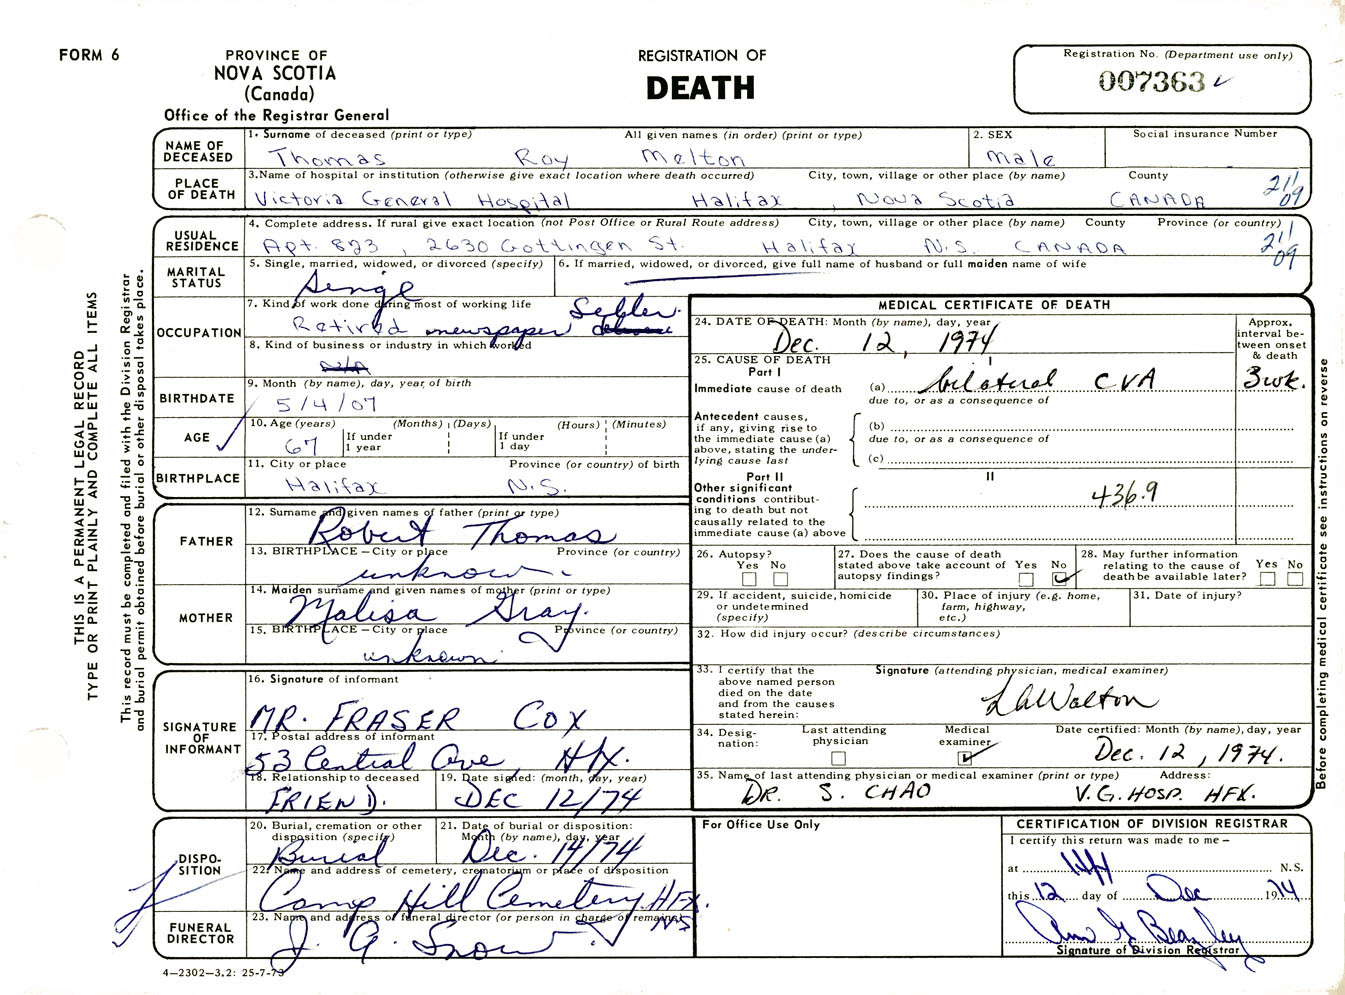 FORM 6
PROVINCE OF
NOVA SCOTIA
(Canada)
Office of the Registrar General
REGISTRATION OF
DEATH
Registration No. (Department use only)
007363
THIS IS A PERMANENT LEGAL RECORD
TYPE OR PRINT PLAINLY AND COMPLETE ALL ITEMS
This record must be completed and filed with the Division Registrar
and burial permit obtained before burial or other disposal takes place.
NAME OF DECEASED
1. Surname of deceased (print or type) All given names (in order) (print or type)
Thomas Roy Melton
2. SEX
Male
Social insurance Number
PLACE OF DEATH
3.Name of hospital or institution (otherwise give exact location where death occurred) City, town, village or other place (by name) County
Victoria General Hospital Halifax, Nova Scotia CANADA
211
09
USUAL RESIDENCE
4. Complete address. If rural give exact location (not Post Office or Rural Route address) City, town, village or other place (by name) County Province (or country)
Apt. 823, 2630 Gottingen St. Halifax N.S. CANADA
211
09
MARITAL STATUS
5. Single, married, widowed, or divorced (specify)
Single
6. If married, widowed, or divorced, give full name of husband or full maiden name of wife
OCCUPATION
7. Kind of work done during most of working life
Retired newspaper Seller
8. Kind of business or industry in which worked
N/A
BIRTHDATE
9. Month (by name), day, year of birth
5/4/07
AGE
10. Age (years) (Months) (Days) (Hours) (Minutes)
67
If under 1 year
If under 1 day
BIRTHPLACE
11. City or place Province (or country) of birth
Halifax N.S.
FATHER
12. Surname and given names of father (print or type)
Robert Thomas
13. BIRTHPLACE — City or place Province (or country)
unknown
MOTHER
14. Maiden surname and given names of mother (print or type)
Malisa Gray
15. BIRTHPLACE — City or place Province (or country)
unknown
SIGNATURE OF INFORMANT
16. Signature of informant
MR. FRASER COX
17. Postal address of informant
53 Central Ave, HFX.
18. Relationship to deceased
FRIEND.
19. Date signed: (month, day, year)
DEC 12/74
DISPOSITION
20. Burial, cremation or other disposition (specify)
Burial
21. Date of burial or disposition: Month (by name), day, year
Dec. 14/74
22. Name and address of cemetery, crematorium or place of disposition
Camp Hill Cemetery, HFX. NS
FUNERAL DIRECTOR
23. Name and address of funeral director (or person in charge of remains)
J. A. Snow
4—2302—3.2: 25-7-73
MEDICAL CERTIFICATE OF DEATH
24. DATE OF DEATH: Month (by name), day, year
Dec. 12, 1974
Approx. interval between onset & death
25. CAUSE OF DEATH
Part I
I
Immediate cause of death
(a) bilateral CVA
3 wk.
due to, or as a consequence of
Antecedent causes, if any, giving rise to the immediate cause (a) above, stating the underlying cause last
(b)
due to, or as a consequence of
(c)
Part II
II
Other significant conditions contributing to death but not causally related to the immediate cause (a) above
436.9
26. Autopsy?
Yes No
27. Does the cause of death stated above take account of autopsy findings?
Yes No
28. May further information relating to the cause of death be available later?
Yes No
29. If accident, suicide, homicide or undetermined (specify)
30. Place of injury (e.g. home, farm, highway, etc.)
31. Date of injury?
32. How did injury occur? (describe circumstances)
33. I certify that the above named person died on the date and from the causes stated herein:
Signature (attending physician, medical examiner)
34. Designation:
Last attending physician
Medical examiner
Date certified: Month (by name), day, year
Dec. 12, 1974.
35. Name of last attending physician or medical examiner (print or type) Address:
DR. S. CHAO V.G. HOSP. HFX.
Before completing medical certificate see instructions on reverse
For Office Use Only
CERTIFICATION OF DIVISION REGISTRAR
I certify this return was made to me —
at N.S.
this 12 day of Dec 1974
Signature of Division Registrar